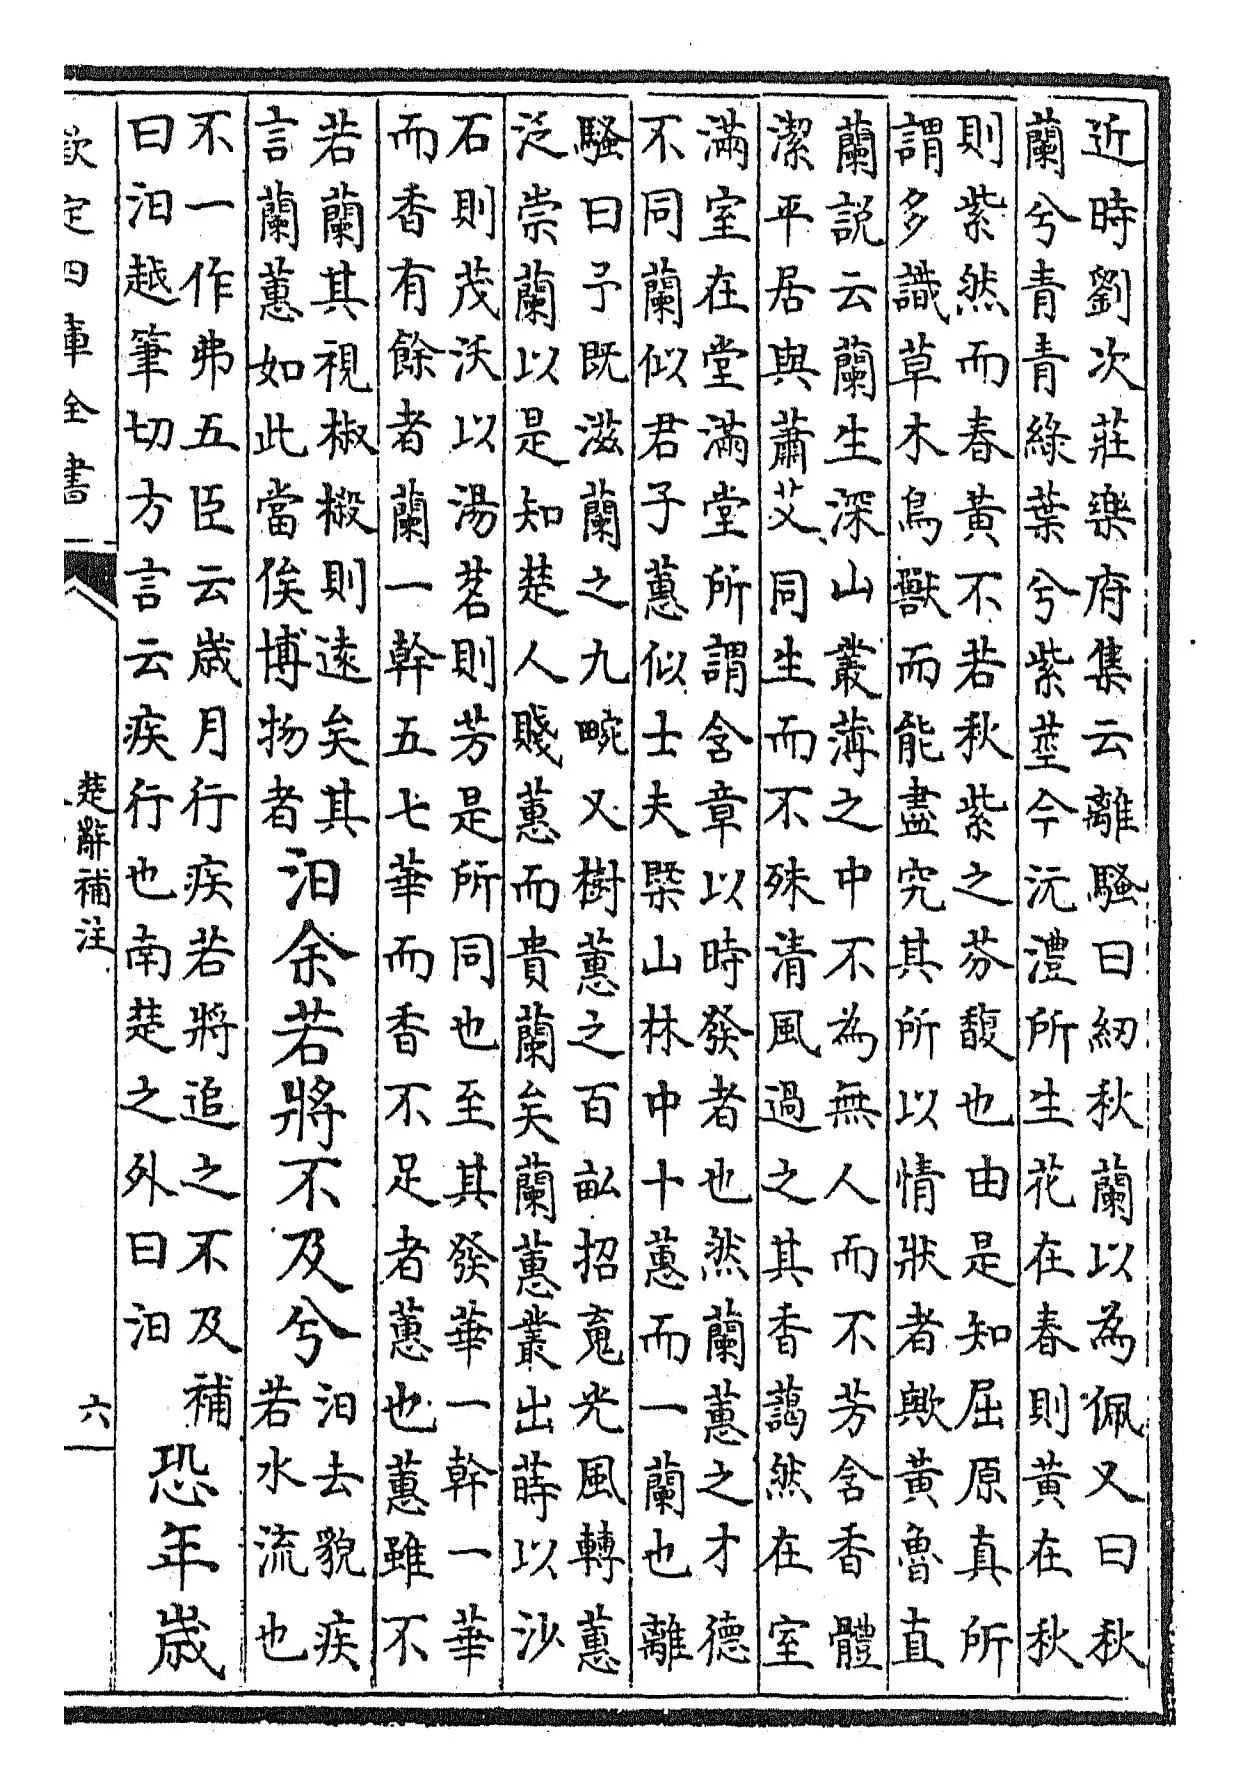 近時劉次莊樂府集云離騷曰紉秋蘭以為佩又曰秋
蘭兮青青綠葉兮紫莖今沅澧所生花在春則黃在秋
則紫然而春黃不若秋紫之芬馥也由是知屈原真所
謂多識草木鳥獸而能盡究其所以情狀者歟黃魯直
蘭説云蘭生深山叢薄之中不為無人而不芳含香體
潔平居與蕭艾同生而不殊清風過之其香藹然在室
滿室在堂滿堂所謂含章以時發者也然蘭蕙之才德
不同蘭似君子蕙似士夫槩山林中十蕙而一蘭也離
騷曰予既滋蘭之九畹又樹蕙之百畝招䰟光風轉蕙
泛崇蘭以是知楚人賤蕙而貴蘭矣蘭蕙叢出蒔以沙
石則茂沃以湯茗則芳是所同也至其發華一幹一華
而香有餘者蘭一幹五七華而香不足者蕙也蕙雖不
若蘭其視椒樧則逺矣其
言蘭蕙如此當俟博物者
汩余若將不及兮
汩去貌疾
若水流也
不一作弗五臣云嵗月行疾若將追之不及補
曰汩越筆切方言云疾行也南楚之外曰汩
恐年嵗
欽定四庫全書
楚辭補注
六